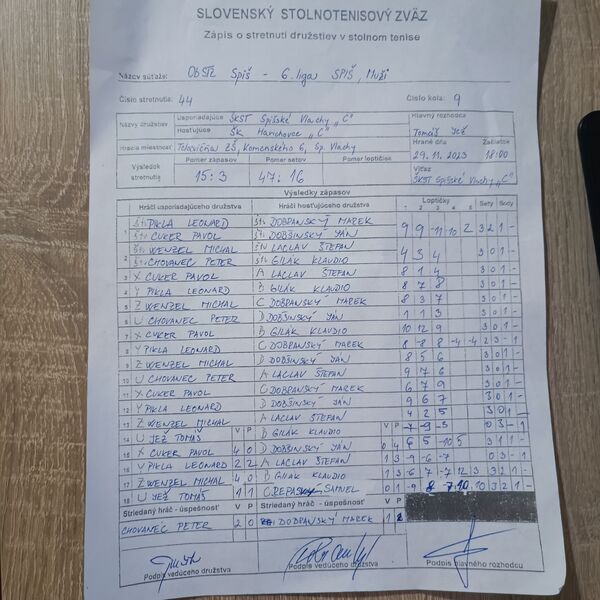 SLOVENSKÝ STOLNOTENISOVÝ ZVÄZ
Zápis o stretnutí družstiev v stolnom tenise
Názov súťaže: ObSTZ Spiš - 6. liga SPIŠ, Muži
Číslo stretnutia: 44 Číslo kola: 9
Názvy družstiev Usporiadajúce ŠKST Spišské Vlachy „C" Hlavný rozhodca
Hosťujúce ŠK Harichovce „C" Tomáš Jež
Hracia miestnosť Telocvičňa ZŠ, Komenského 6, Sp. Vlachy Hrané dňa Začiatok
29. 11. 2023 18:00
Výsledok stretnutia Pomer zápasov Pomer setov Pomer loptičiek Víťaz
15:3 47:16 ŠKST Spišské Vlachy „C"
Výsledky zápasov
Hráči usporiadajúceho družstva Hráči hosťujúceho družstva Loptičky Sety Body
1 2 3 4 5
1 PIKLA LEONARD DOBRANSKÝ MAREK 9 9 -11 -10 2 3 2 1 -
CUKER PAVOL DOBŠINSKÝ JÁN
2 WENZEL MICHAL LACLAV ŠTEFAN 4 3 4 3 0 1 -
CHOVANEC PETER GILÁK KLAUDIO
3 X CUKER PAVOL A LACLAV ŠTEFAN 8 1 4 3 0 1 -
4 Y PIKLA LEONARD B GILÁK KLAUDIO 8 7 8 3 0 1 -
5 Z WENZEL MICHAL C DOBRANSKÝ MAREK 8 3 7 3 0 1 -
6 U CHOVANEC PETER D DOBŠINSKÝ JÁN 1 1 3 3 0 1 -
7 X CUKER PAVOL B GILÁK KLAUDIO 10 12 9 3 0 1 -
8 Y PIKLA LEONARD C DOBRANSKÝ MAREK 8 -8 8 -4 -4
9 Z WENZEL MICHAL D DOBŠINSKÝ JÁN 8 5 6 3 0 1 -
10 U CHOVANEC PETER A LACLAV ŠTEFAN 9 7 6 3 0 1 -
11 X CUKER PAVOL C DOBRANSKÝ MAREK 6 7 9 3 0 1 -
12 Y PIKLA LEONARD D DOBŠINSKÝ JÁN 9 6 7 3 0 1 -
13 Z WENZEL MICHAL A LACLAV ŠTEFAN 4 2 5 3 0 1 -
14 U JEŽ TOMÁŠ V P B GILÁK KLAUDIO V P -7 -9 -5 0 3 - 1
15 X CUKER PAVOL 4 0 D DOBŠINSKÝ JÁN 0 4 6 5 -10 5 3 1 1 -
16 Y PIKLA LEONARD 2 2 A LACLAV ŠTEFAN 1 3 -9 -6 -7
17 Z WENZEL MICHAL 4 0 B GILÁK KLAUDIO 1 3
18 U JEŽ TOMÁŠ 1 1 C REPASKÝ SAMUEL 0 1 -9 8 -7 10 10 3 2 1 -
Striedaný hráč - úspešnosť V P Striedaný hráč - úspešnosť V P
CHOVANEC PETER 2 0 DOBRANSKÝ MAREK 1 2
Podpis vedúceho družstva Podpis vedúceho družstva Podpis hlavného rozhodcu